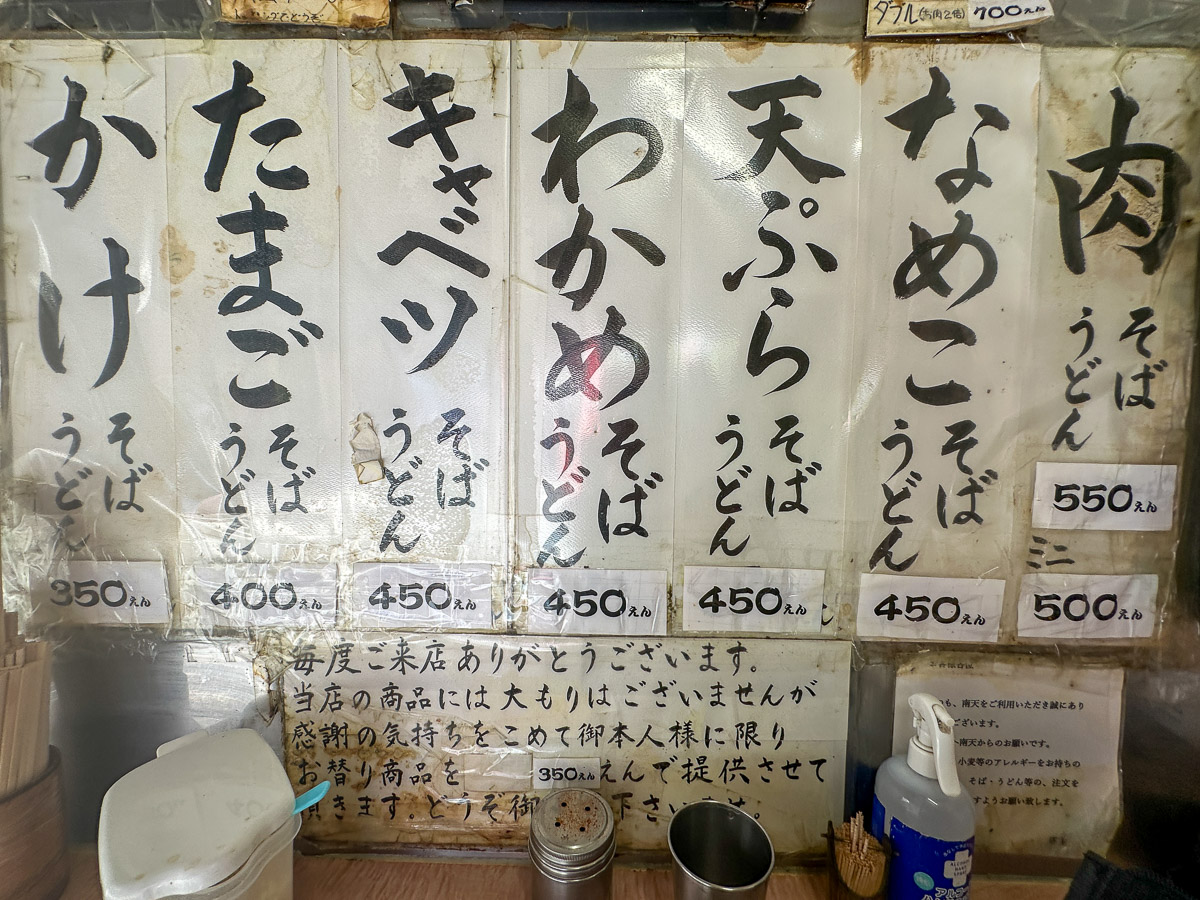 ダブル(お肉2倍) 700えん
肉
そば
うどん
550えん
ミニ
500えん
なめこ
そば
うどん
450えん
天ぷら
そば
うどん
450えん
わかめ
そば
うどん
450えん
キャベツ
そば
うどん
450えん
たまご
そば
うどん
400えん
かけ
そば
うどん
350えん
毎度ご来店ありがとうございます。
当店の商品には大もりはございませんが
感謝の気持ちをこめて御本人様に限り
お替り商品を 350えん えんで提供させて
頂きます。どうぞ御 下さいませ。
も、南天をご利用いただき誠にあり
ございます。
南天からのお願いです。
小麦等のアレルギーをお持ちの
そば・うどん等の、注文を
すようお願い致します。